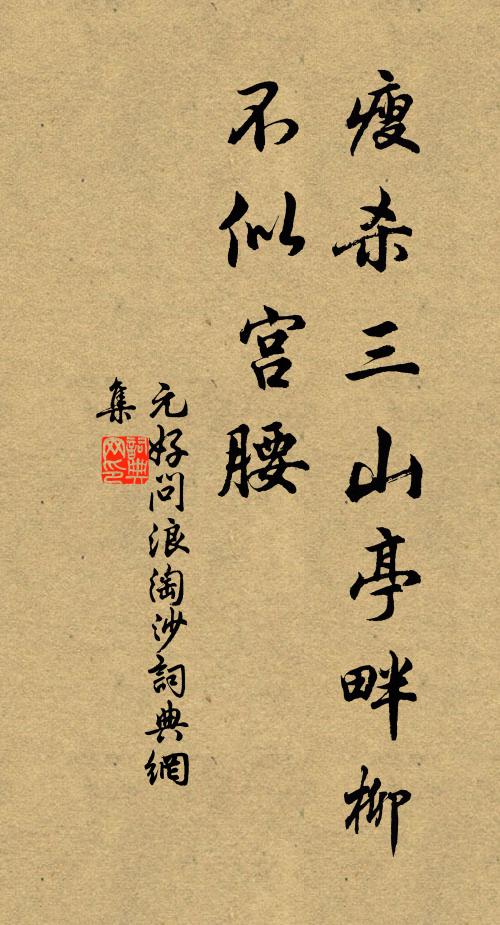 瘦杀三山亭畔柳
不似宫腰
元好问浪淘沙詞典網
集
詞典
网印